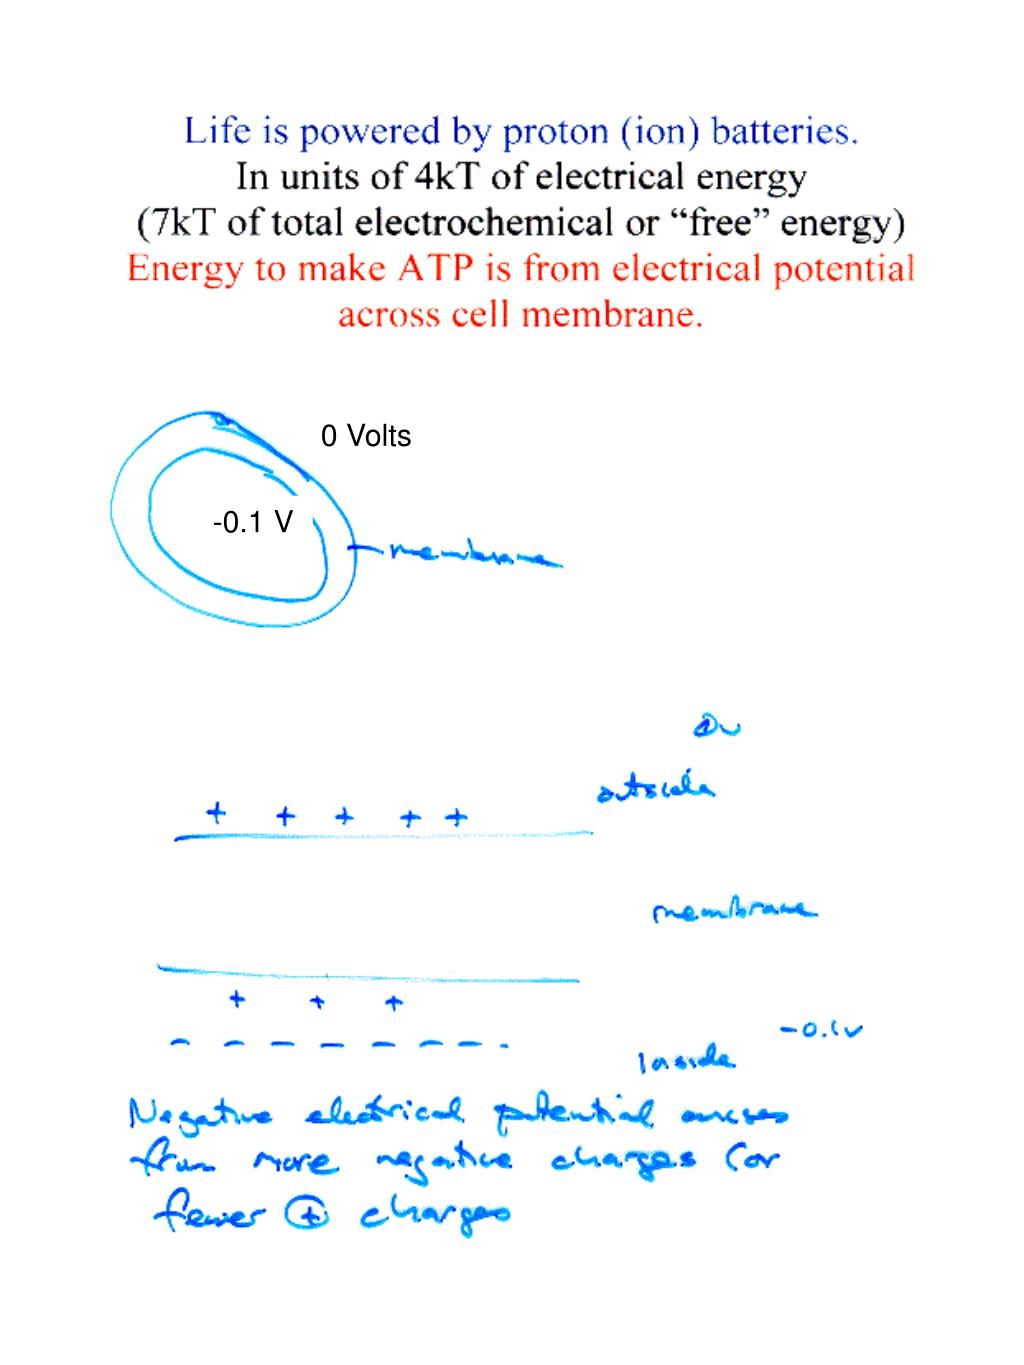 Life is powered by proton (ion) batteries.
In units of 4kT of electrical energy
(7kT of total electrochemical or “free” energy)
Energy to make ATP is from electrical potential
across cell membrane.
0 Volts
-0.1 V
membrane
0v
outside
+ + + + +
membrane
+ + +
-0.1v
- - - - - - - -
Inside
Negative electrical potential arises
from more negative charges (or
fewer + charges